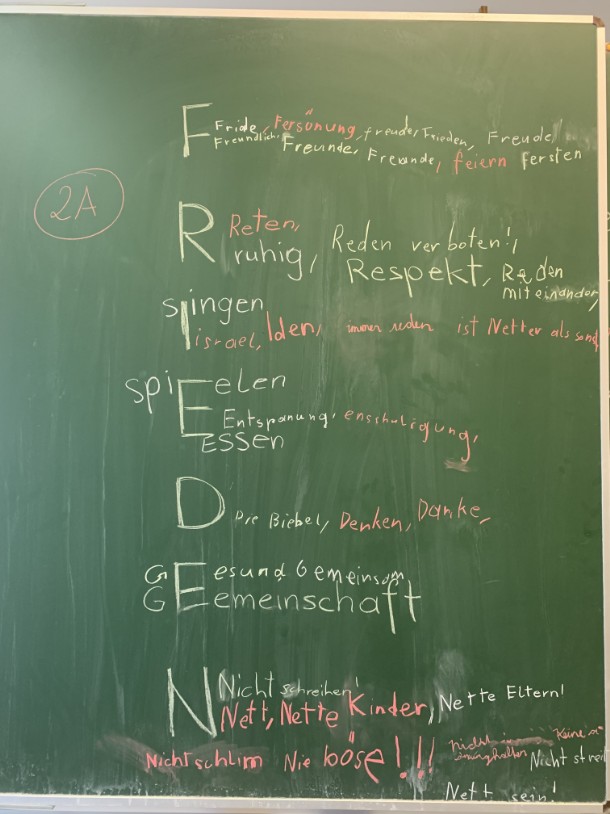 F Fride, Fersönung, freude, Frieden, Freude,
Freundlich, Freunde, Freunde, feiern Fersten
2A
R Reten,
ruhig, Reden verboten!,
Respekt, Reden
miteinander,
singen
israel, Iden, immer reden ist Netter als sonst
spielen
Entspanung, enschuligung,
Essen
D Die Biebel, Denken, Danke,
Gesund Gemeinsam
GEemeinschaft
N Nicht schreihen!
Nett, Nette Kinder, Nette Eltern!
Nicht schlim Nie böse!!!
Nicht streit
Nett sein!